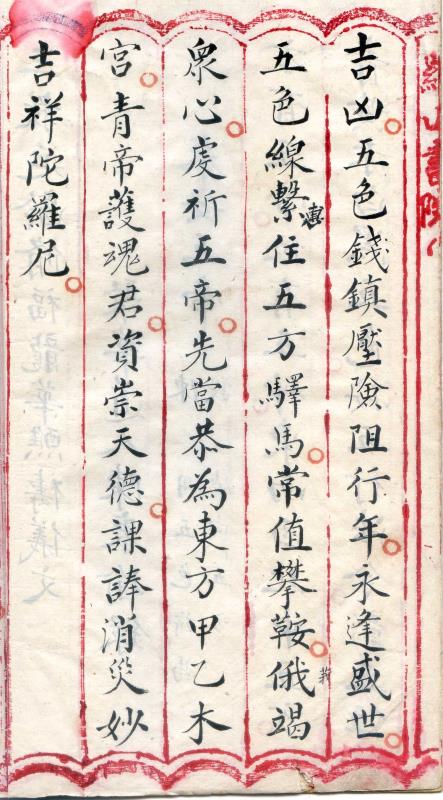 吉凶五色錢鎮壓險阻行年永逢盛世
五色線繫住五方驛馬常值攀鞍俄竭
眾心虔祈五帝先當恭為東方甲乙木
宮青帝護魂君資崇天德課誦消災妙
吉祥陀羅尼